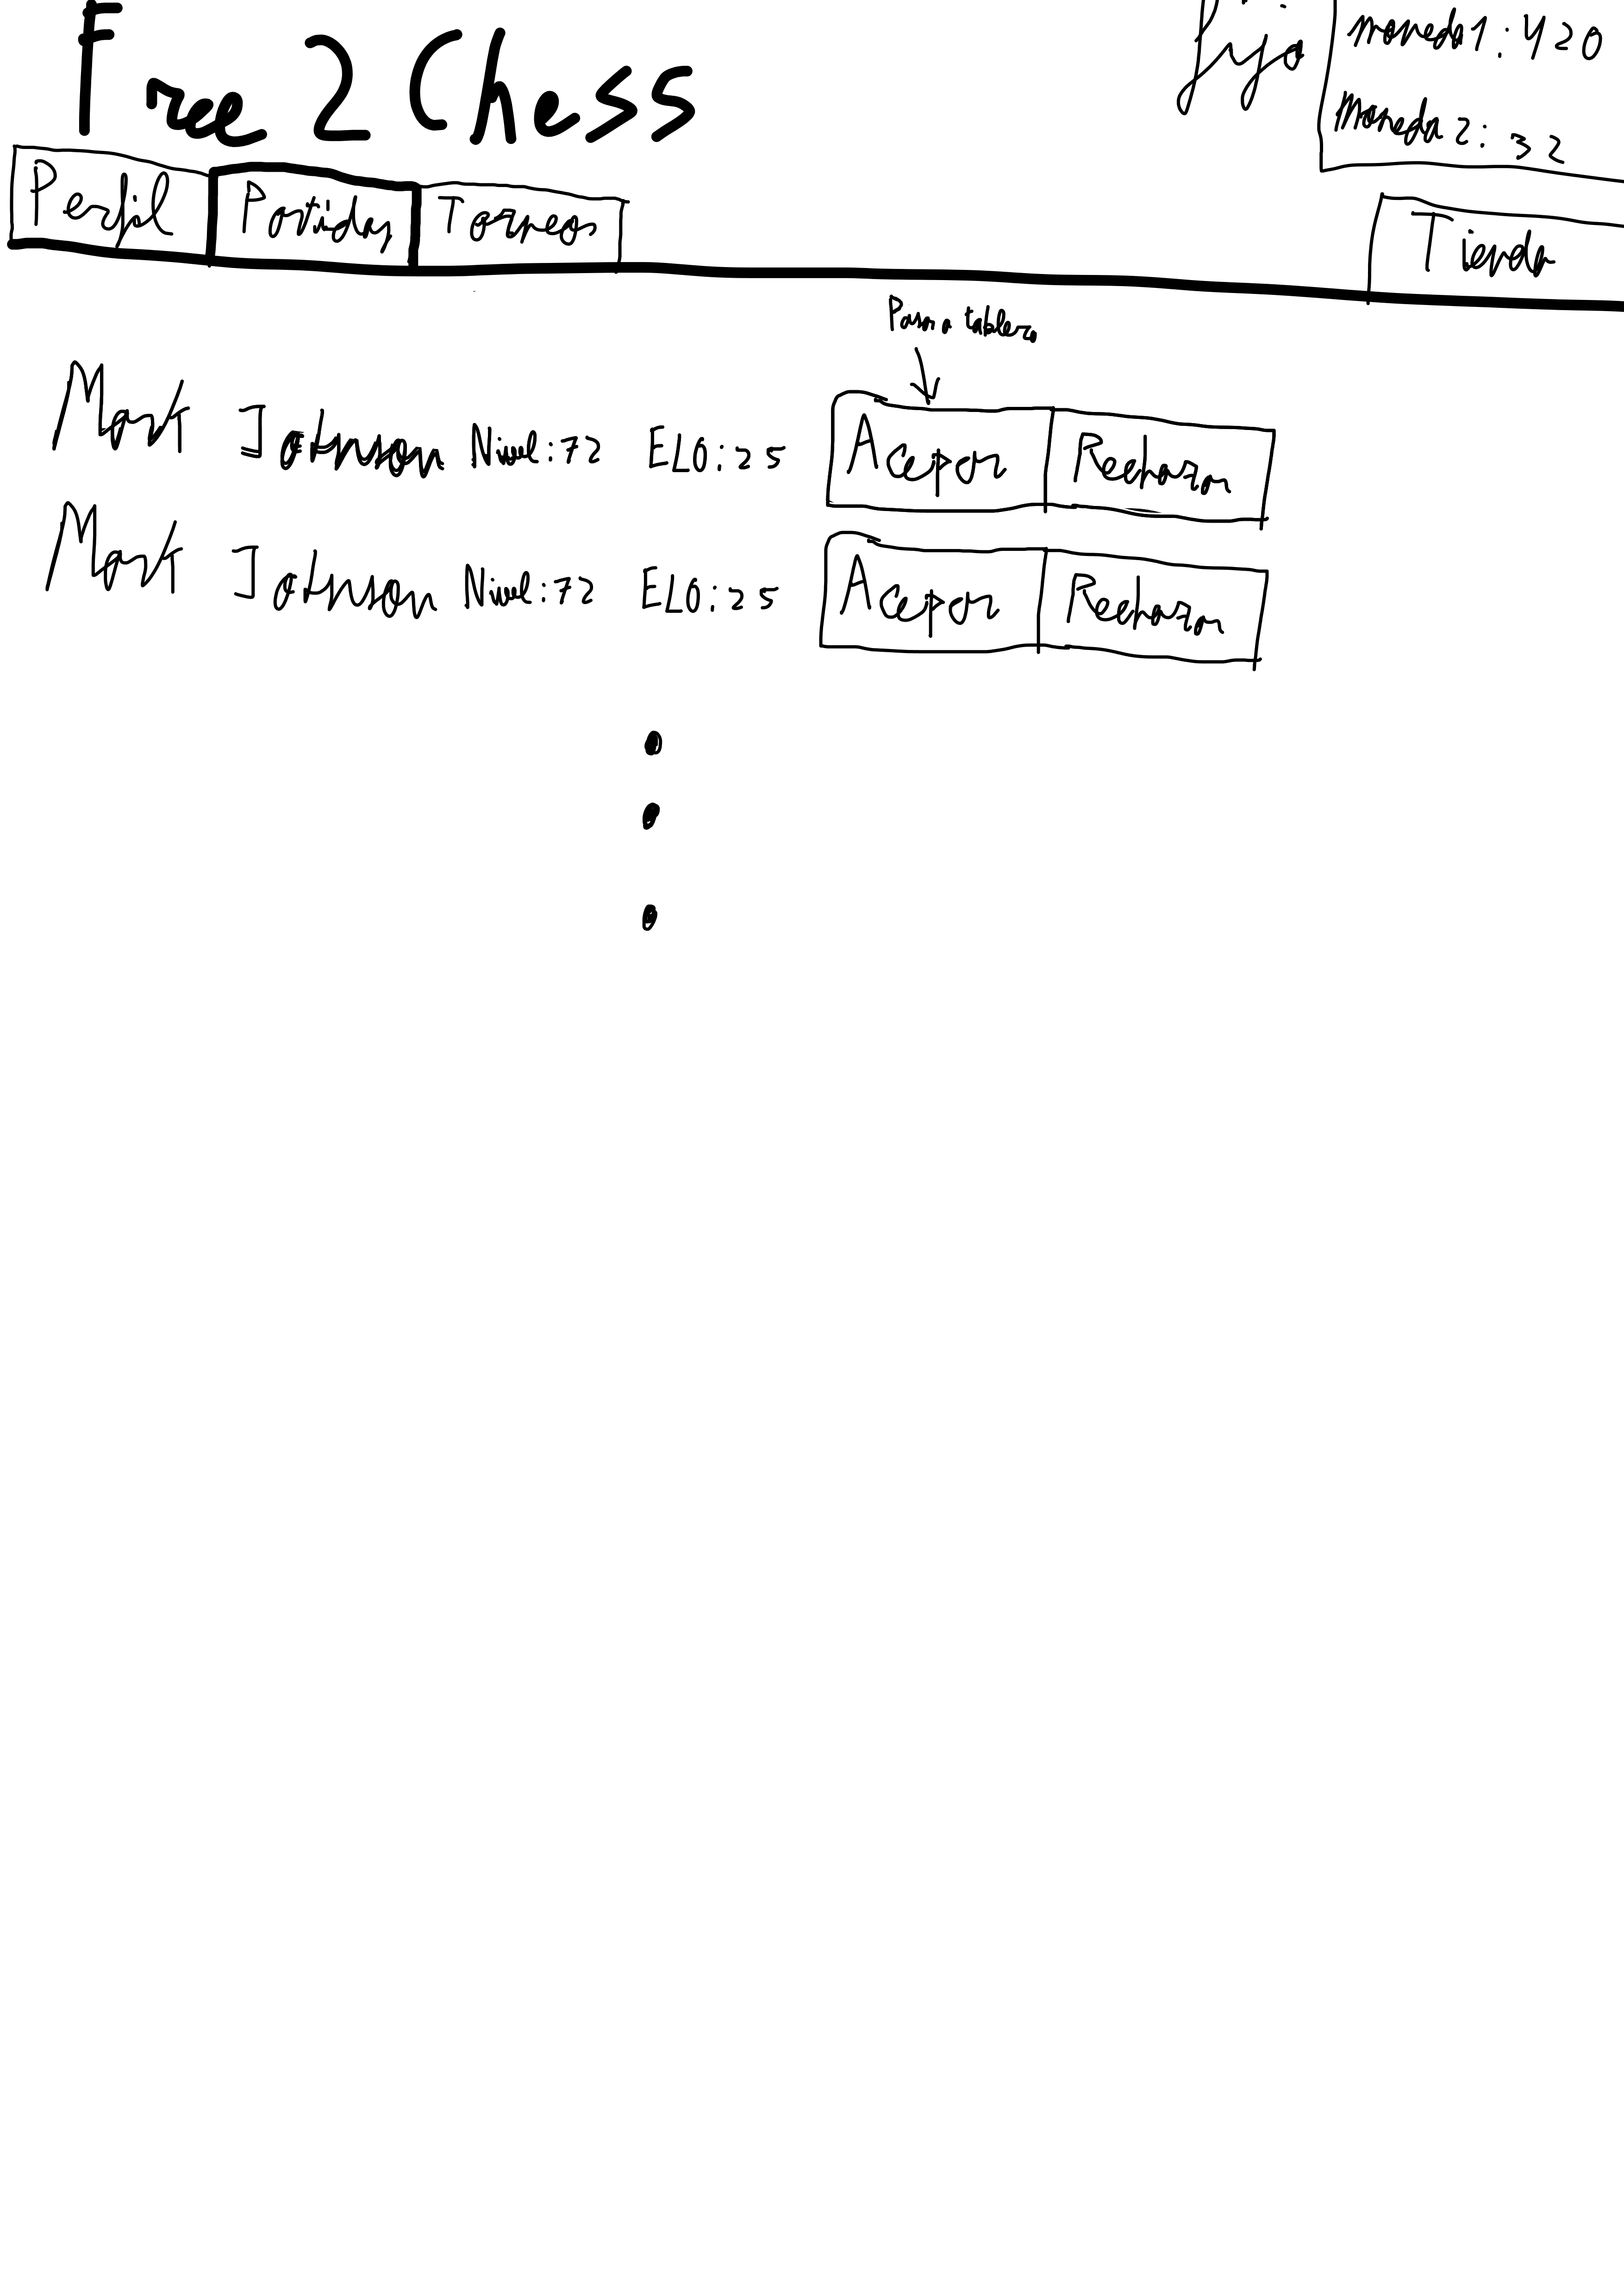 Free 2 Chess
jija
moneda1: 420
moneda 2: 32
Perfil Partidas Torneos Tienda
Pasar a tablero
Mark Johnson Nivel: 72 ELO: 25 Acepar Rechazar
Mark Johnson Nivel: 72 ELO: 25 Acepar Rechazar